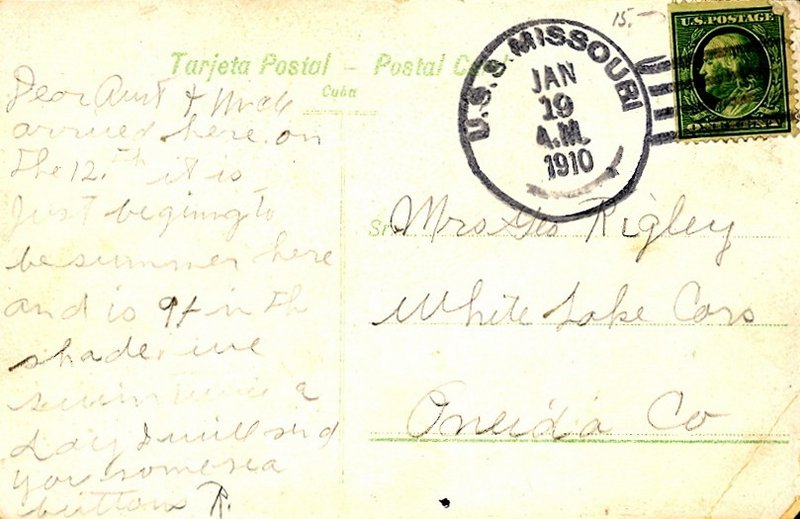 15.-
U.S. POSTAGE
ONE CENT
U.S.S. MISSOURI
JAN
19
A.M.
1910
Tarjeta Postal – Postal
Cuba
Dear Aunt & Uncle
arrived here on
the 12.th it is
Just begining to
be summer here
and is 94 in th
shade. we
swim twice a
day I will send
you some sea
buttons R.
Sr.
Mrs Geo Rigley
White Lake Cors
Oneida Co